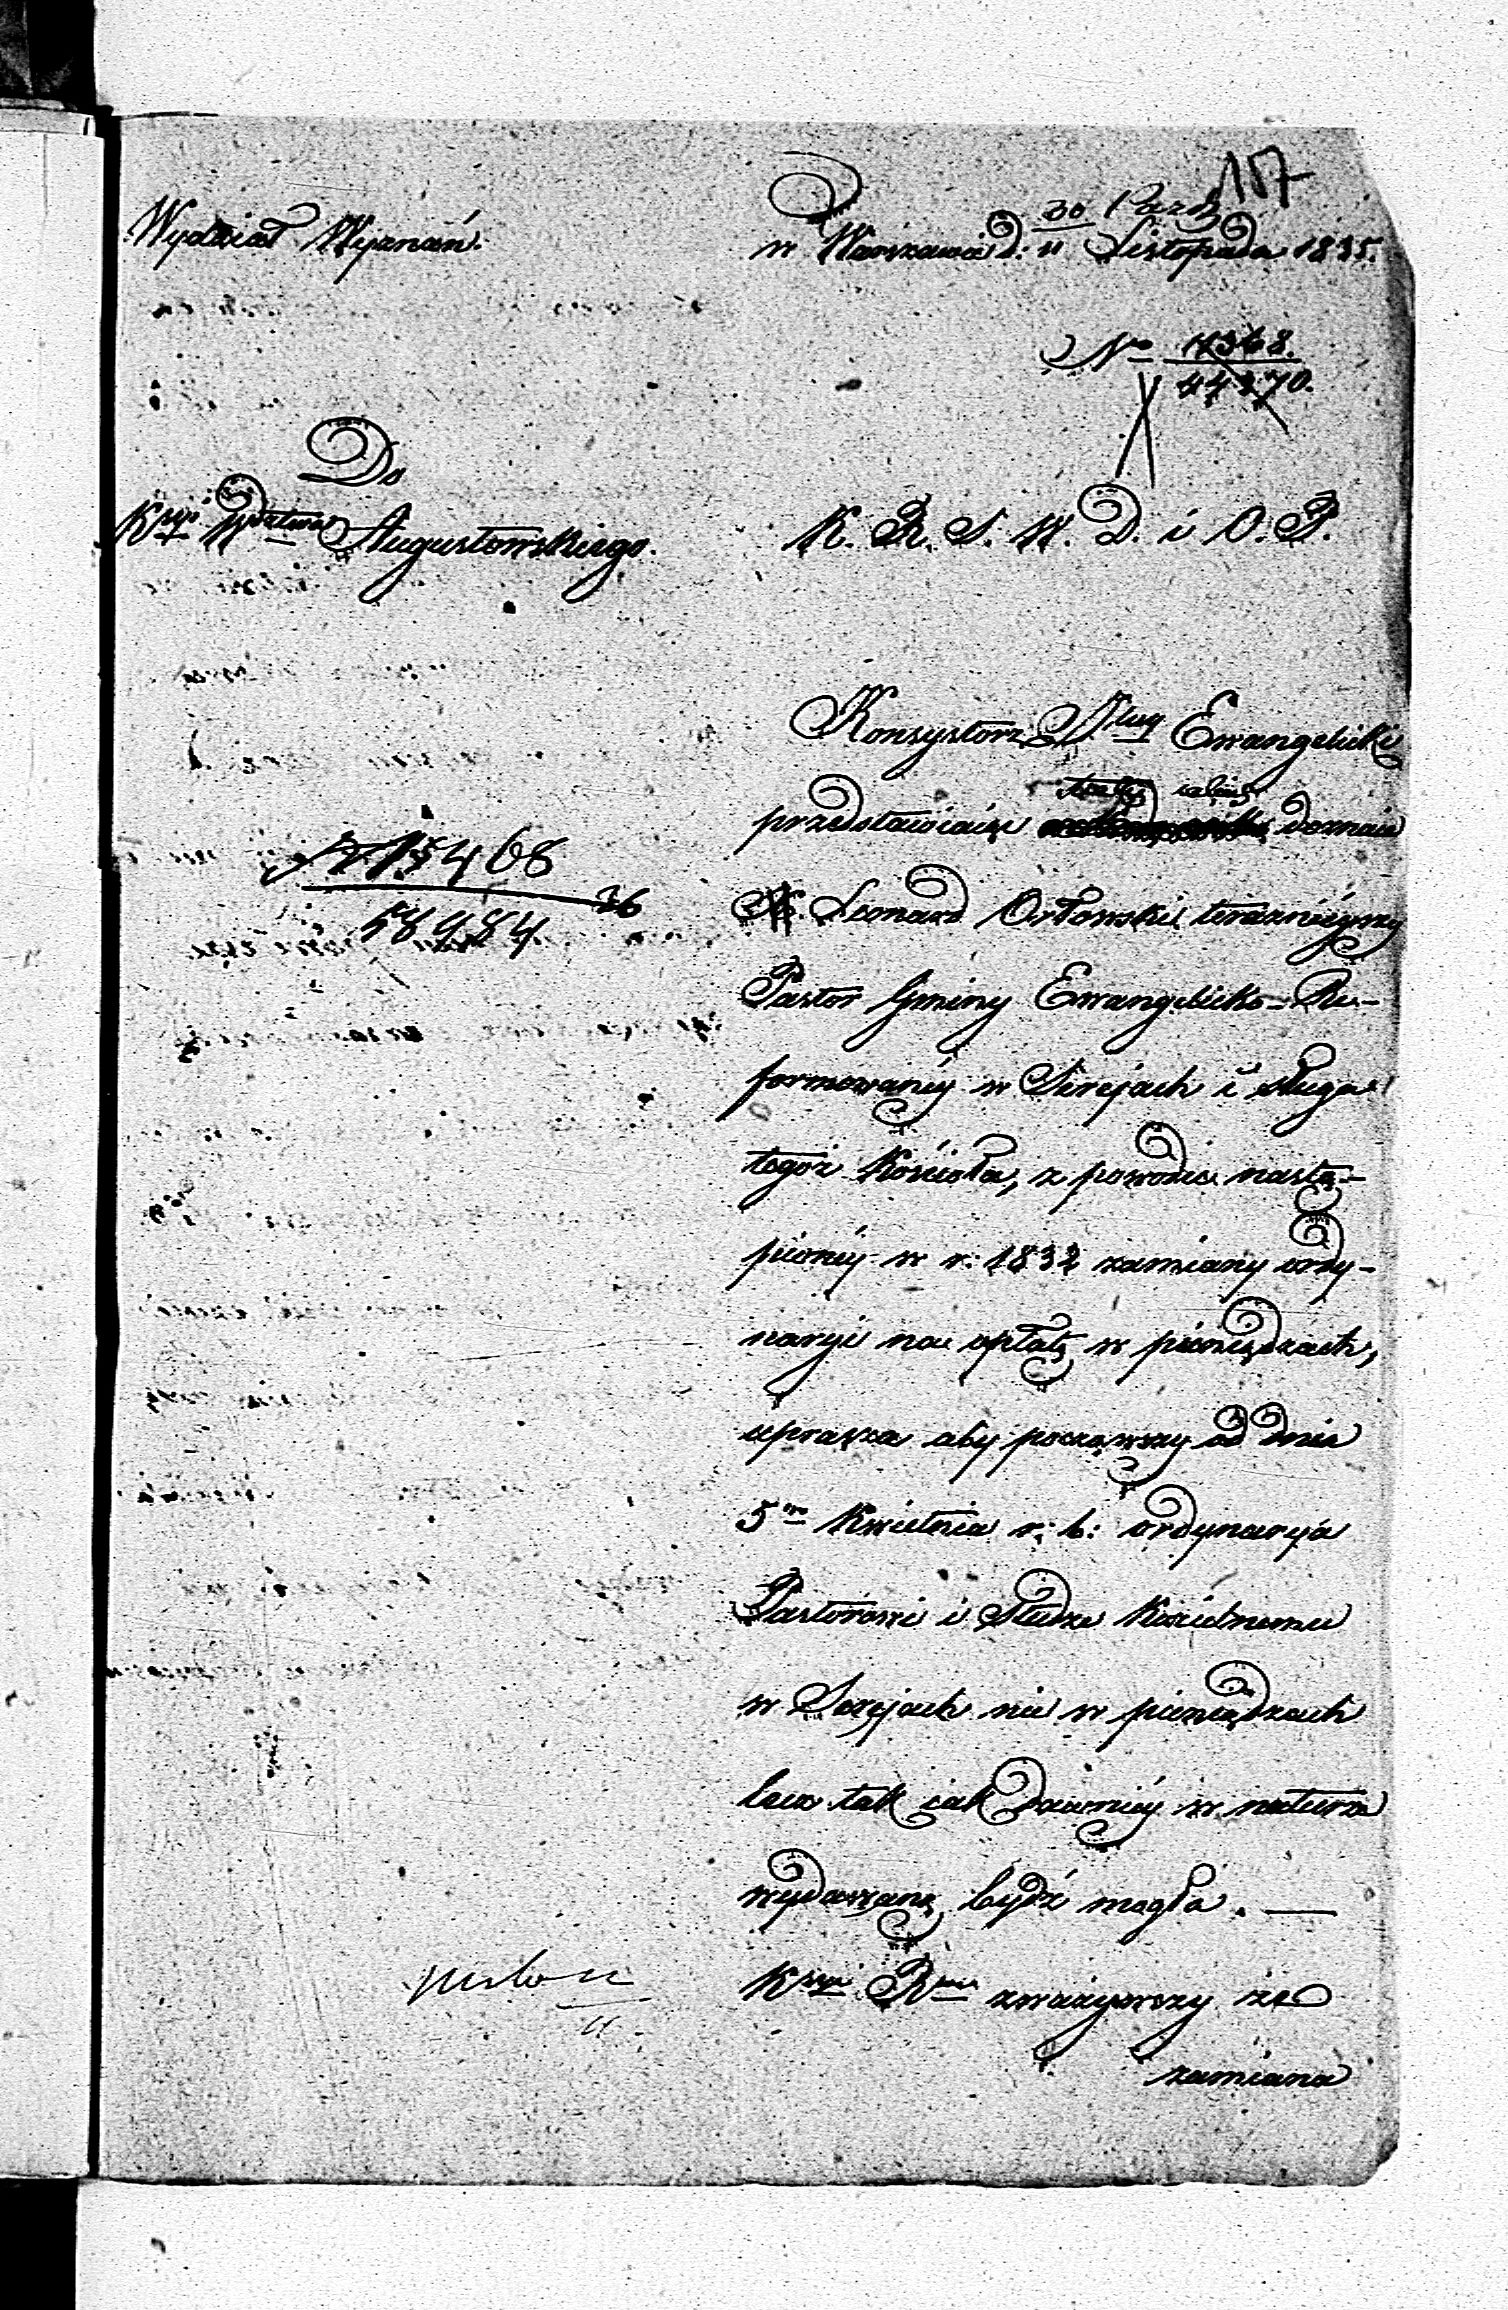 107
Wydział Wyznań.
30 Paźdz
w Warszawie d. 11 Listopada 1835.
No 17368.
44270.
Do
Kssyi Wdztwa Augustowskiego.
K. R. S. W. D. i O. P.
Konsystorz Ewangelicki
przedstawiając doznaie
X. Leonard Orłowski teraznieyszy
Pastor Gminy Ewangelicko-Re-
formowanéy w Sirejach i sługa
tegoż Kościoła, z powodu nastą-
pionéy w r: 1832 zamiany ordy-
naryi na opłatę w pieniądzach,
uprasza aby począwszy od dnia
5go Kwietnia r: b: ordynarya
Pastorowi i Słudze Kościelnemu
w Serejach nie w pieniądzach
lecz tak jak dawniéy w naturze
wydawaną bydź mogła. —
Kssyi Rwa zważywszy że
zamiana
15468
58984
36